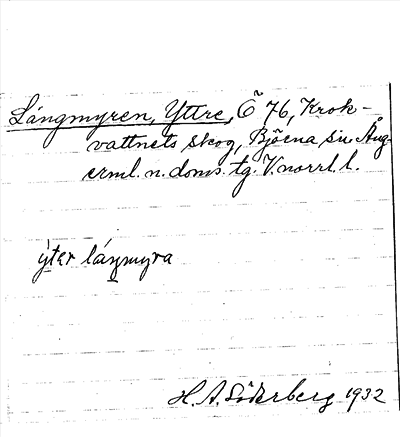 Långmyren, Yttre, Ö 76, Krok-
vattnets skog, Björna sn. Ång-
erml. n. doms. tg. V.norrl. l.
ýter låŋmyra
H. A. Söderberg 1932